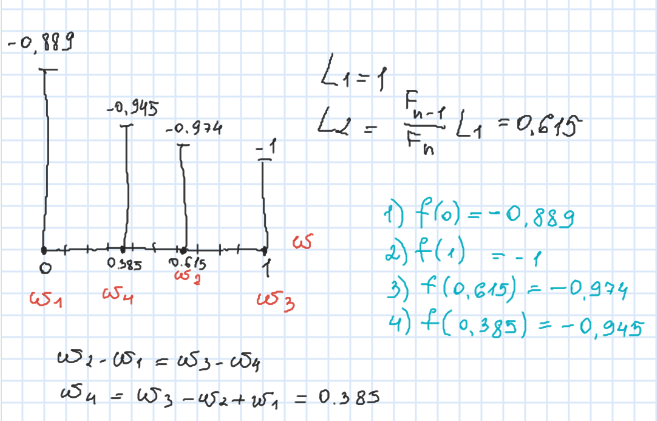 -0,889
-0,945
-0.974
-1
0
0.385
0.615
1
ω
ω1
ω4
ω2
ω3
L1 = 1
L2 = Fn-1/Fn L1 = 0,615
1) f(0) = -0,889
2) f(1) = -1
3) f(0,615) = -0,974
4) f(0,385) = -0,945
ω2 - ω1 = ω3 - ω4
ω4 = ω3 - ω2 + ω1 = 0.385